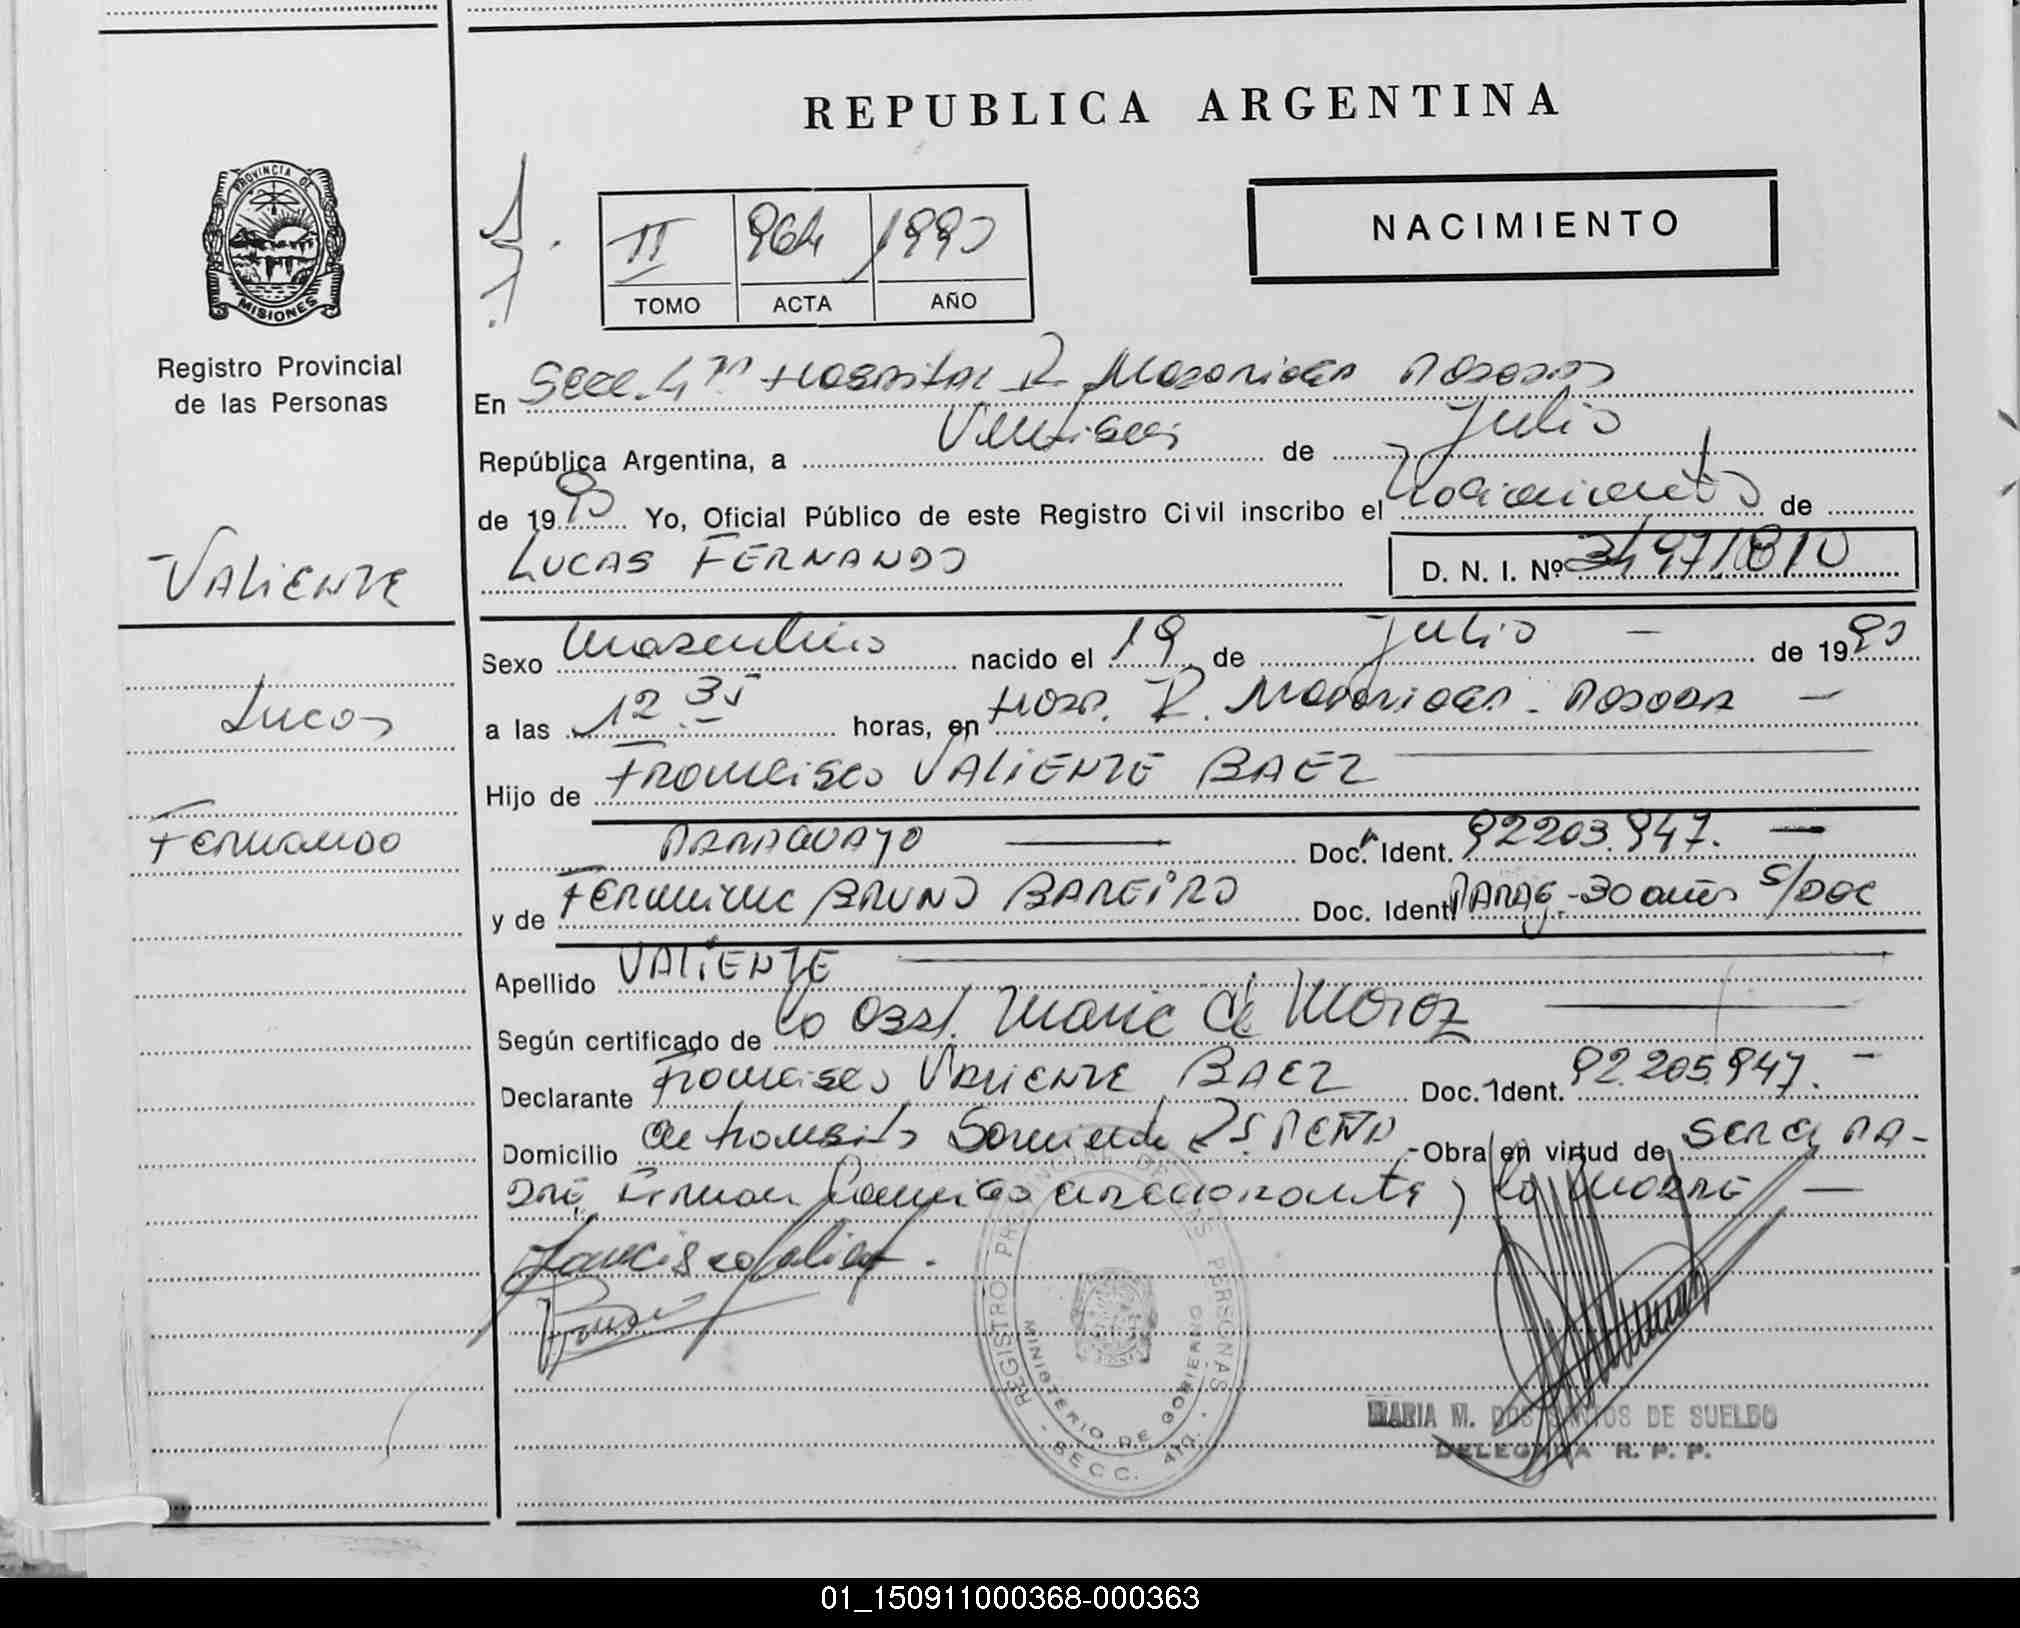 REPUBLICA ARGENTINA
PROVINCIA DE
MISIONES
Registro Provincial
de las Personas
NACIMIENTO
II 964 1990
TOMO ACTA AÑO
En Secc. 4ta Hospital R. Madariaga Posadas
República Argentina, a Veintiseis de Julio
de 1990 Yo, Oficial Público de este Registro Civil inscribo el nacimiento de
LUCAS FERNANDO D. N. I. Nº
VALIENTE
Lucas
Fernando
Sexo masculino nacido el 19 de Julio — de 1990
a las 12.35 horas, en Hosp. R. Madariaga - Posadas —
Hijo de Francisco VALIENTE BAEZ
PARAGUAYO — Doc. Ident. 92203.947. —
y de BRUNO BAREIRO Doc. Ident. PARAG - 30 años S/DOC
Apellido VALIENTE
Según certificado de la Obst. Maria de Moroz
Declarante Francisco VALIENTE BAEZ Doc. Ident. 92.205.947. —
Domicilio Sarmiento PEÑA - Obra en virtud de ser el PA-
DRE Firman declarante y la MADRE —
REGISTRO PROVINCIAL DE LAS PERSONAS
MINISTERIO DE GOBIERNO
- SECC. 4ta. -
MARIA M. DOS SANTOS DE SUELDO
DELEGADA R. P. P.
01_150911000368-000363